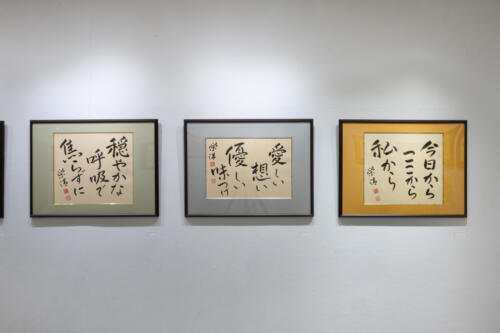 穏やかな
呼吸で
焦らずに
愛しい
想い
優しい
味つけ
今日から
ここから
私から